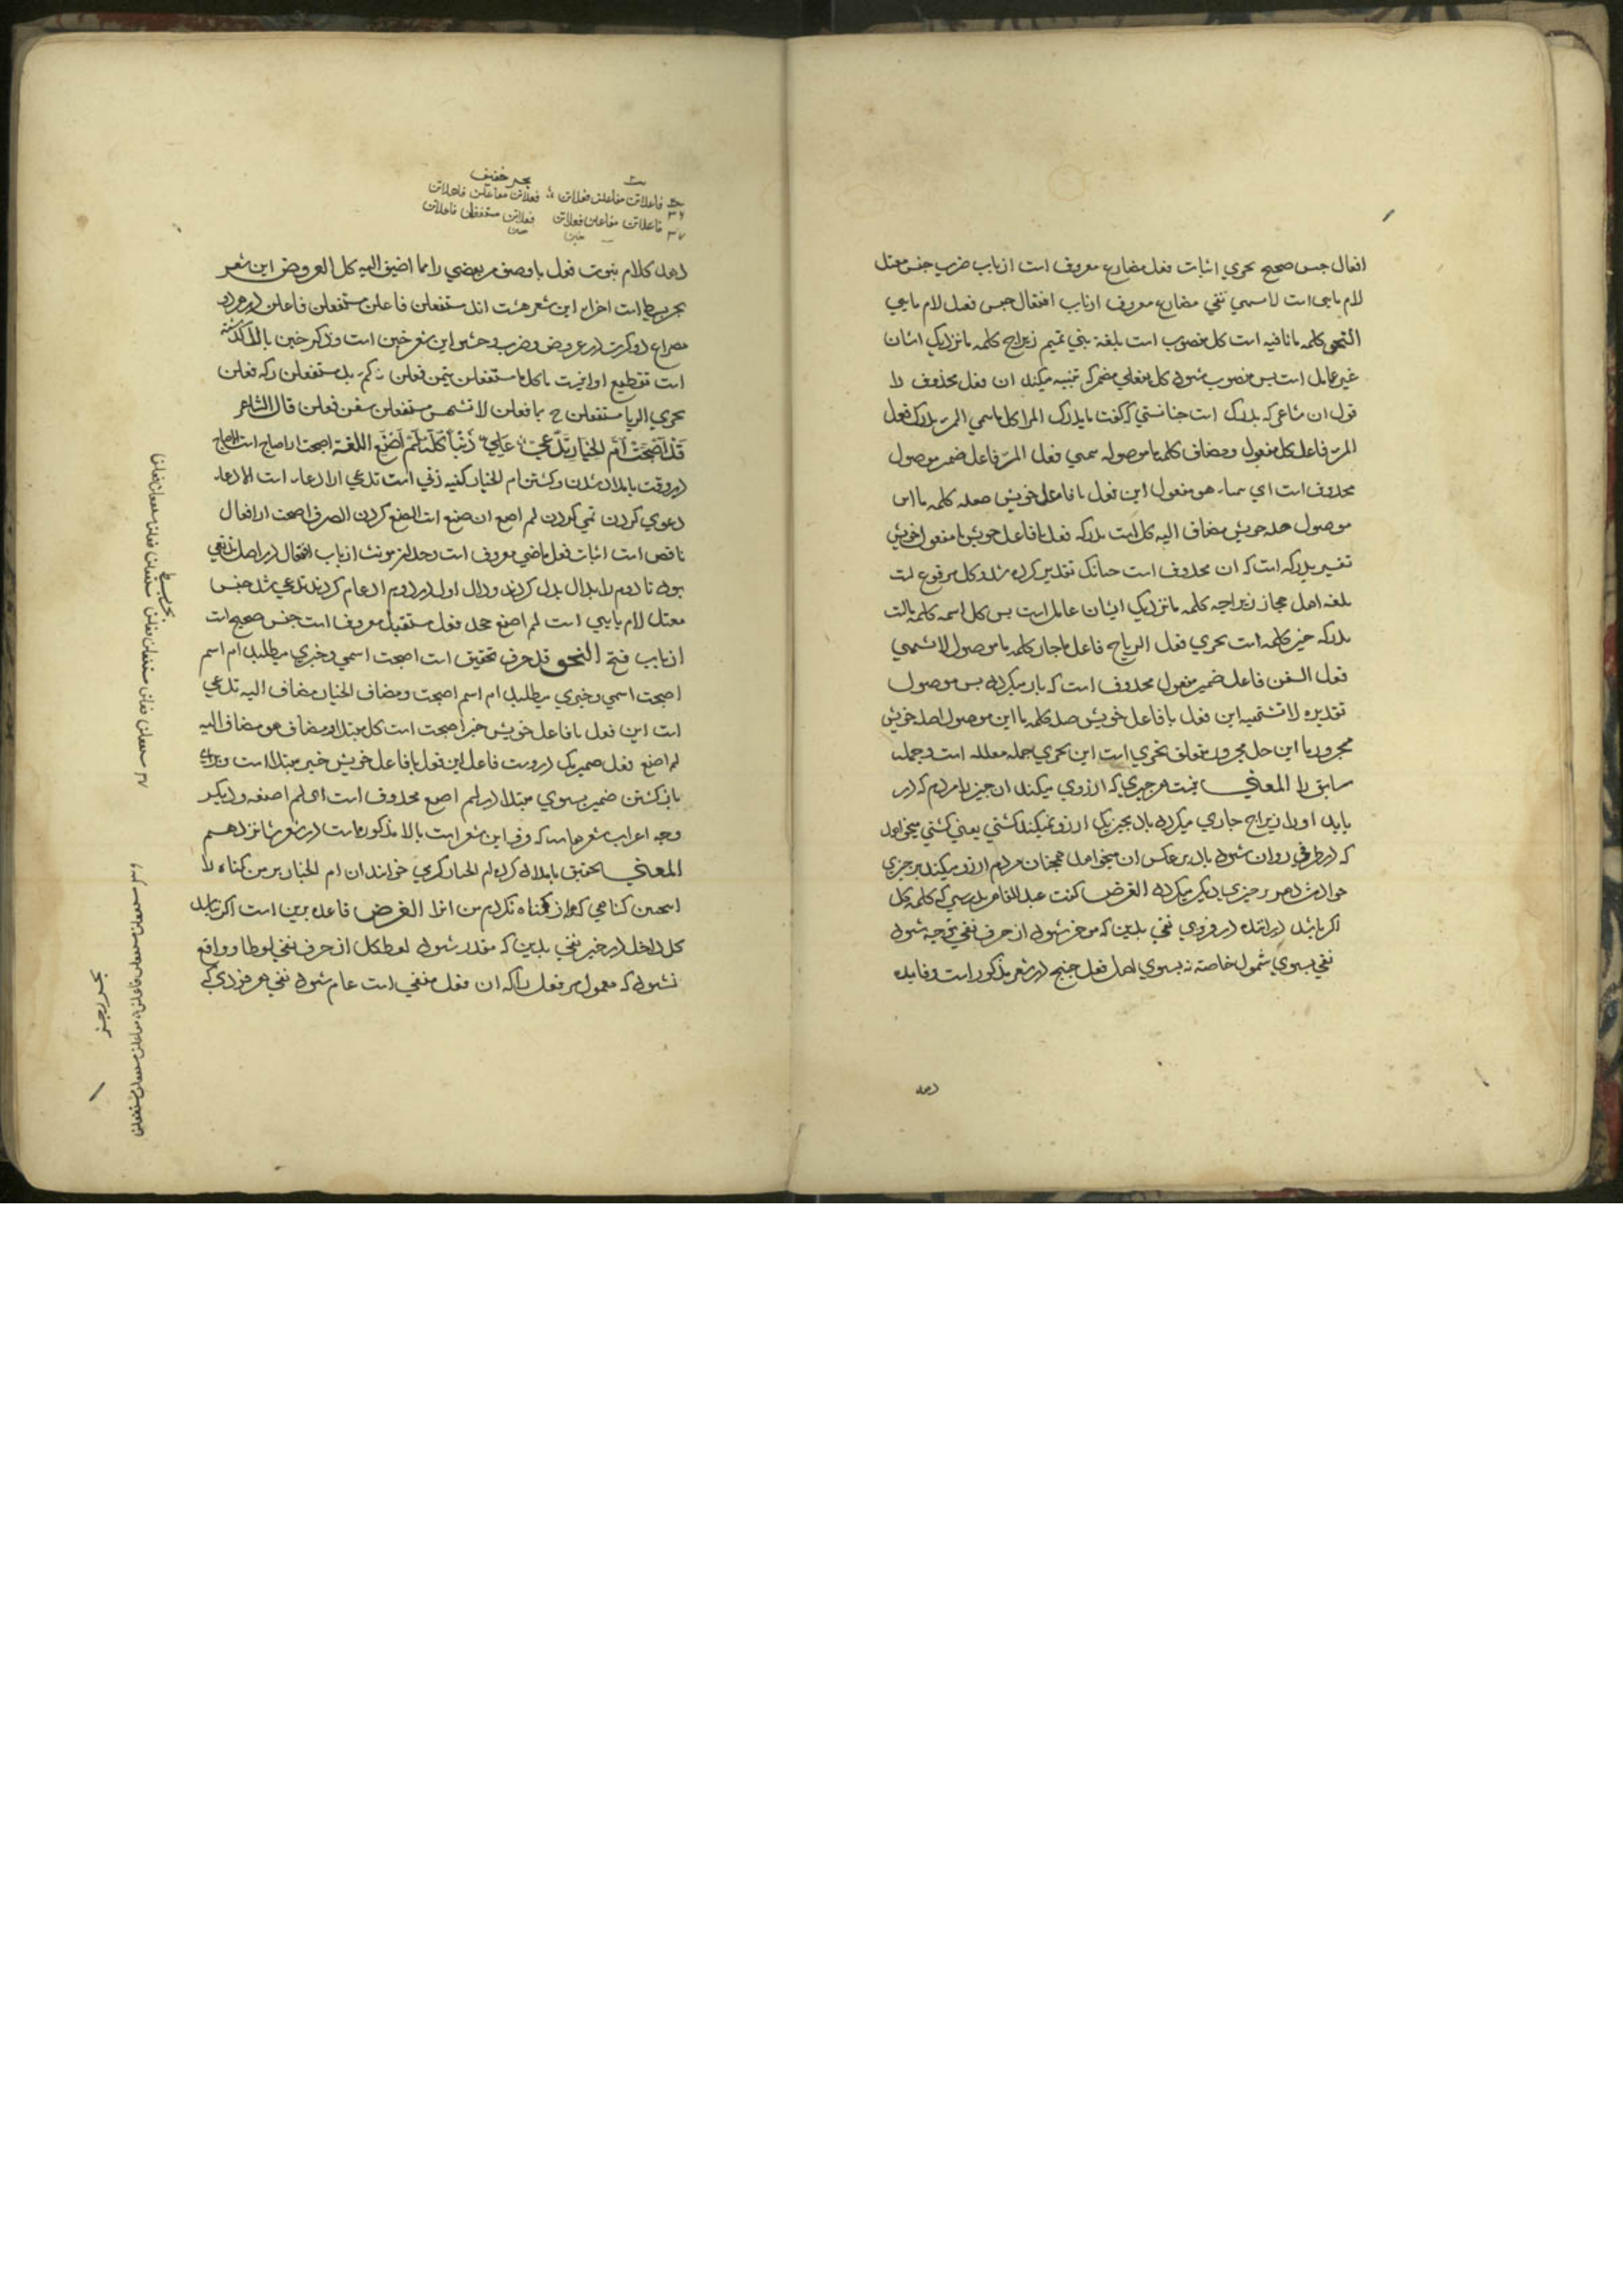 افعال جنس صحیح تجري اثبات فعل مضارع معروف است از باب ضرب جنس معتل
لام یایی است لا تشتهي نفي مضارع معروف از باب افتعال جنس فعل لام یایي
النحو کلمه ما نافیه است کل منصوب است بلغة بني تمیم زیراچ کلمه ما نزدیک ایشان
غیر عامل است پس منصوب شود کل بفعلي مضمر که تنبیه میکند ان فعل محذوف را
قول ان شاعر که یدرک است چنانستي که گفت ما یدرک المرا کل ما یتمني المرء یدرک فعل
المرء فاعل کل مفعول ومضاف کلمه ما موصوله یتمني فعل المرء فاعل ضمیر موصول
محذوف است اي یتمناه هو مفعول این فعل با فاعل خویش صله کلمه ما این
موصول صله خویش مضاف الیه کل است یدرکه فعل با فاعل خویش با مفعول خویش
تفسیر یدرکه است که ان محذوف است چنانک تقدیر کرده شد وکل مرفوع است
بلغه اهل حجاز زیراچه کلمه ما نزدیک ایشان عامل است پس کل اسمه کلمه ما است
یدرکه خبر کلمه است تجري فعل الریاح فاعل با جار کلمه ما موصول لا تشتهي
فعل السفن فاعل ضمیر مفعول محذوف است که باز میگردد بس موصول
تقدیره لا تشتهیه این فعل با فاعل خویش صله کلمه ما این موصول با صله خویش
مجرور با این جار مجرور متعلق تجري است این تجري جمله معلله است وجمله
سابق را المعني نیست هر چیزي که ارزوي میکند ان چیز را مردم که در
یابد او را زیراچ جاري میگردد باد بچیزیکه ارزو نمیکند کشتي یعني کشتي میخواهد
که در طرفي روان شود باد بر عکس ان میخواهد همچنان مردم ارزو میکند بر چیزي
حوادث دهر بر چیزي دیگر میگردد الغرض گفت عبد القاهر بدرستي که کلمه کل
اگر باشد در امده در فروي نفي بدین که موخر شود از حرف نفي توجه شود
نفي بسوي شمول خاصة نه بسوي اصل فعل چنانچ در شعر مذکور است وفایده
دهد
بحر خفیف
فاعلاتن مفاعلن فعلاتن فعلاتن مفاعلن فاعلاتن
فاعلاتن مفاعلن فعلاتن فعلاتن مستفعلن فاعلاتن
دهد کلام ثبوت فعل با وصف مر بعضي را بما اضیف الیه کل العروض این شعر
بحر بسیط است اجزاء این شعر هشت اند مستفعلن فاعلن مستفعلن فاعلن در هر دو
مصراع دو کرت در عروض وضرب وحشو این شعر خبن است وذکر خبن بالا گذشته
است تقطیع او اینست ما کل ما مستفعلن یتمن فعلن ن کمر یدمستفعلن رکه فعلن
تجري الریا مستفعلن ح بما فعلن لا تشتهس مستفعلن سفن فعلن قال الشاعر
قَدْ أَصْبَحَتْ أُمُّ الخِیَارِ تَدَّعِي ؞ عَلَيَّ ذَنْبًا کُلُّهُ لَمْ أَصْنَعِ اللغة اصبحت از اصباح است الاصباح
در وقت بامداد شدن وگشتن ام الخیار کنیه زني است تدعي از ادعاء است الادعاء
دعوي کردن نمي کردن لم اصنع ان صنع است الصنع کردن الصرف اصبحت از افعال
ناقص است اثبات فعل ماضي معروف است وحدان مونث از باب افتعال در اصل تدتعي
بود تا دوم را بدال بدل کردند ودال اول در دوم ادغام کردند تدعي شد جنس
معتل لام یایي است لم اصنع جحد فعل مستقبل معروف است جنس صحیح است
از باب فتح النحو قد حرف تحقیق است اصبحت اسمي وخبري میطلبد ام اسم
اصبحت اسمي وخبري میطلبد ام اسم اصبحت ومضاف الخیار مضاف الیه تدعي
است این فعل با فاعل خویش خبر اصبحت است کل مبتدا ومضاف هو مضاف الیه
لم اصنع فعل ضمیر یک دروست فاعل این فعل با فاعل خویش خبر مبتدا است وبراي
باز گشتن ضمیر بسوي مبتدا در لم اصنع محذوف است اي لم اصنعه ودیگر
وجه اعراب شعر که وفي این شعر است بالا مذکور است در شعر شانزدهم
المعني بتحقیق بامداد کرد ام الخیار خواند ان ام الخیار بر من گناه را
گناهي که از گناه نکردم من انرا الغرض قاعده برین است اگر نباید
کل داخل در خیر نفي بدین که مقدر شود لفظ کل از حرف نفي لفظا وواقع
نشود که معمول مر فعل را که ان فعل منفي است عام شود نفي هر فردي که
بحر بسیط
مستفعلن فعلن مستفعلن فعلن مستفعلن فعلن مستفعلن فعلن
بحر رجز